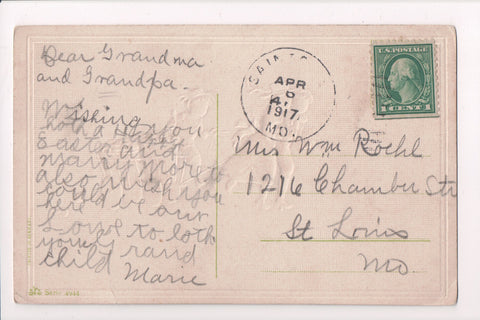 Dear Grandma
and Grandpa.
Wishing
both of you
Easter and
many more to
also wish you
could be our
here
Love to both
your Grand
child Marie
SAINT
APR
6
1917
MO.
U.S. POSTAGE
1 CENT 1
Mrs Wm Roehl
1216 Chamber Str
St Louis
Mo